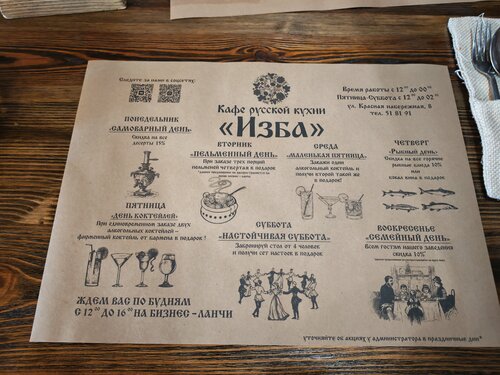 Следите за нами в соцсетях:
Кафе русской кухни
«Изба»
Время работы с 12 00 до 00 00
Пятница-Суббота с 12 00 до 02 00
ул. Красная набережная, 8
тел. 51 81 91
Понедельник
„Самоварный день„
Скидка на все
десерты 15%
Вторник
„Пельменный день„
При заказе трех порций
пельменей четвертая в подарок
Среда
„Маленькая пятница„
Закажи один
алкогольный коктейль и
получи второй такой же
в подарок!
Четверг
„Рыбный день„
Скидка на все горячие
рыбные блюда 10%
или
бокал вина в подарок
Пятница
„День коктейлей„
При единовременном заказе двух
алкогольных коктейлей –
фирменный коктейль от бармена в подарок!
Суббота
„Настойчивая суббота„
Забронируй стол от 4 человек
и получи сет настоек в подарок
Воскресенье
„Семейный день„
Всем гостям нашего заведения
скидка 10%
Ждем вас по будням
с 12 00 до 16 00 на бизнес-ланчи
уточняйте об акциях у администратора в праздничные дни*